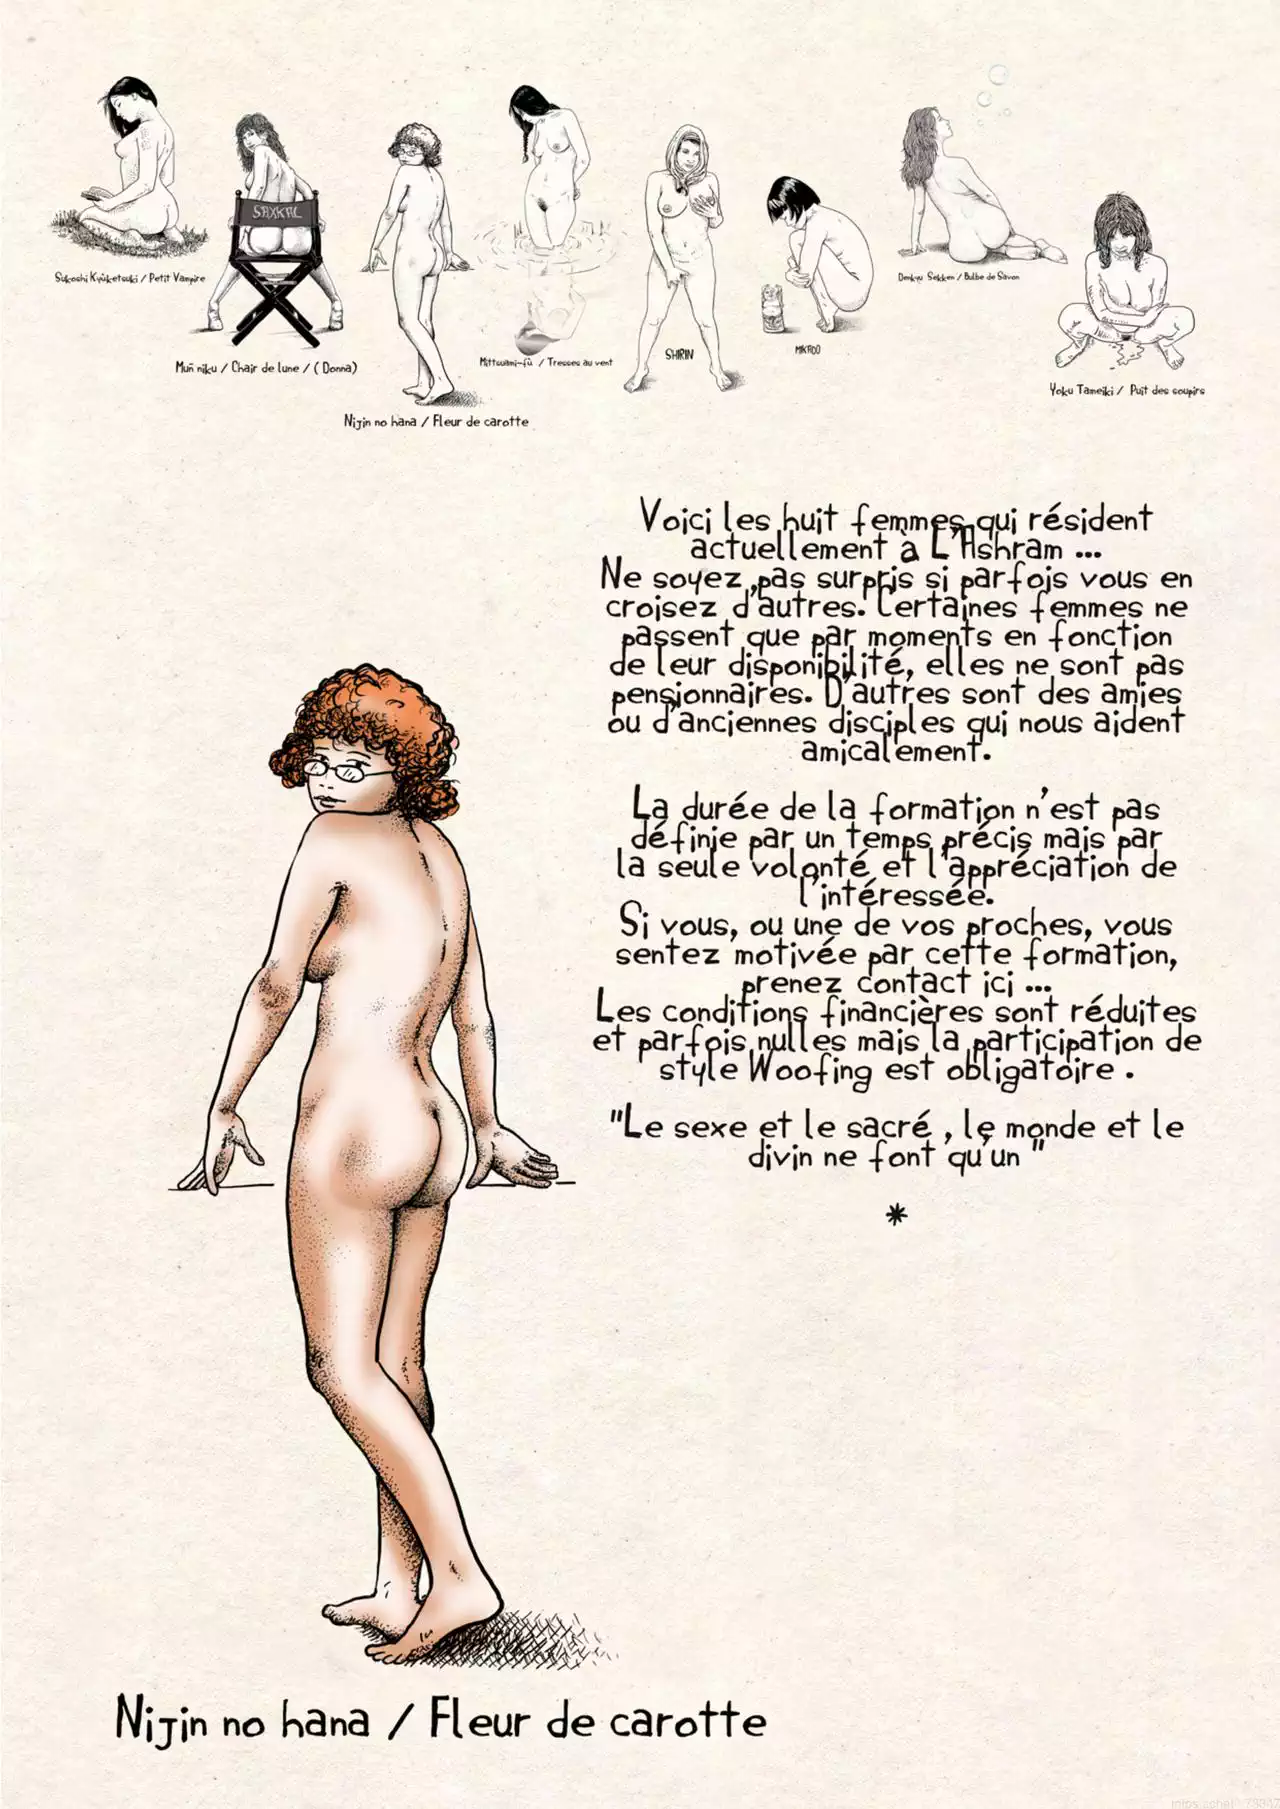 SAXKAL
Sukoshi Kyûketsuki / Petit Vampire
Muñ niku / Chair de lune / ( Donna)
Nijin no hana / Fleur de carotte
Mittsuami-fû / Tresses au vent
SHIRIN
MIKADO
Denkyu Sekken / Bulbe de Savon
Yoku Tameiki / Puit des soupirs
Voici les huit femmes qui résident
actuellement à L'Ashram ...
Ne soyez pas surpris si parfois vous en
croisez d'autres. Certaines femmes ne
passent que par moments en fonction
de leur disponibilité, elles ne sont pas
pensionnaires. D'autres sont des amies
ou d'anciennes disciples qui nous aident
amicalement.
La durée de la formation n'est pas
définie par un temps précis mais par
la seule volonté et l'appréciation de
l'intéressée.
Si vous, ou une de vos proches, vous
sentez motivée par cette formation,
prenez contact ici ...
Les conditions financières sont réduites
et parfois nulles mais la participation de
style Woofing est obligatoire .
"Le sexe et le sacré , le monde et le
divin ne font qu'un "
*
Nijin no hana / Fleur de carotte